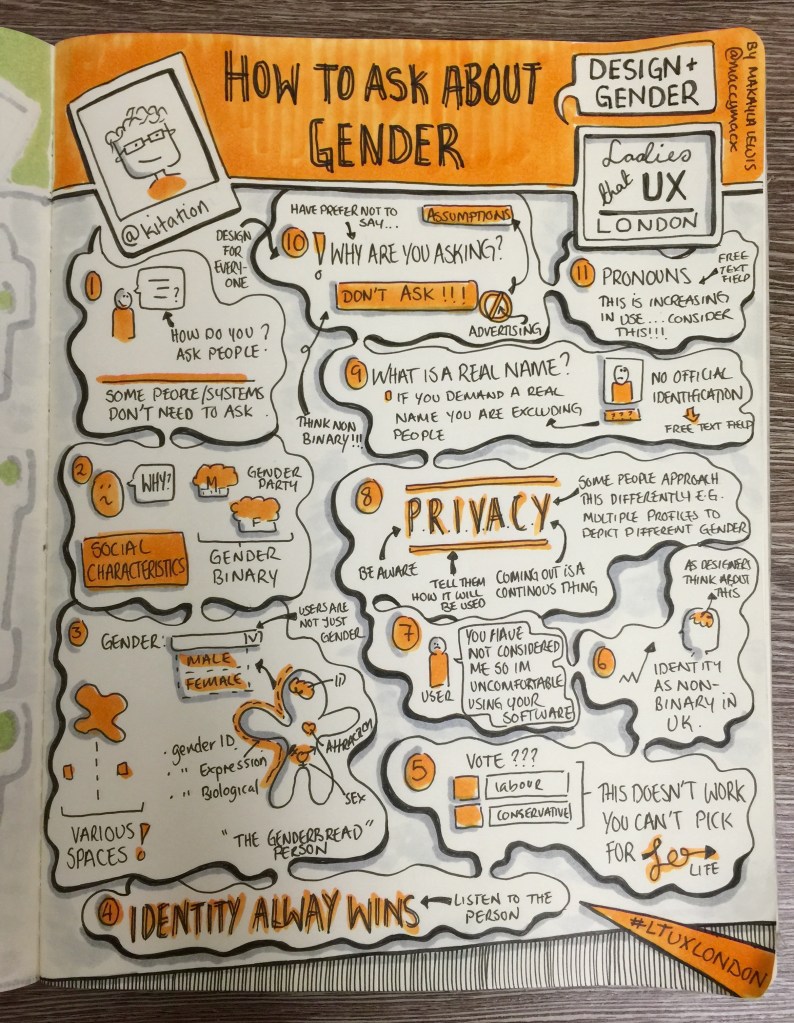 HOW TO ASK ABOUT
GENDER
DESIGN +
GENDER
BY MAKAYLA LEWIS
@maccymack
Ladies
that UX
LONDON
@kitation
1
?
HOW DO YOU ?
ASK PEOPLE.
SOME PEOPLE/SYSTEMS
DON'T NEED TO ASK.
2
WHY?
M
F
GENDER
PARTY
SOCIAL
CHARACTERISTICS
GENDER
BINARY
3
GENDER:
MALE
FEMALE
USERS ARE
NOT JUST
GENDER
VARIOUS
SPACES!
. gender ID
. " Expression
. " Biological
ID
ATTRACTION
SEX
"THE GENDERBREAD"
PERSON
4
IDENTITY ALWAY WINS
LISTEN TO THE
PERSON
5
VOTE ???
labour
CONSERVATIVE
THIS DOESN'T WORK
YOU CAN'T PICK
FOR
LIFE
6
AS DESIGNERS
THINK ABOUT
THIS
IDENTITY
AS NON-
BINARY IN
UK.
7
USER
YOU HAVE
NOT CONSIDERED
ME SO IM
UNCOMFORTABLE
USING YOUR
SOFTWARE
8
P.R.I.V.A.C.Y
SOME PEOPLE APPROACH
THIS DIFFERENTLY E.G.
MULTIPLE PROFILES TO
DEPICT DIFFERENT GENDER
BE AWARE
TELL THEM
HOW IT WILL
BE USED
COMING OUT IS A
CONTINOUS THING
9
WHAT IS A REAL NAME?
IF YOU DEMAND A REAL
NAME YOU ARE EXCLUDING
PEOPLE
???
NO OFFICIAL
IDENTIFICATION
FREE TEXT FIELD
10
HAVE PREFER NOT TO
SAY...
ASSUMPTIONS
! WHY ARE YOU ASKING?
DON'T ASK!!!
ADVERTISING
DESIGN
FOR
EVERY-
ONE
THINK NON
BINARY!!!
11
PRONOUNS
FREE
TEXT
FIELD
THIS IS INCREASING
IN USE... CONSIDER
THIS!!!
#LTUXLONDON